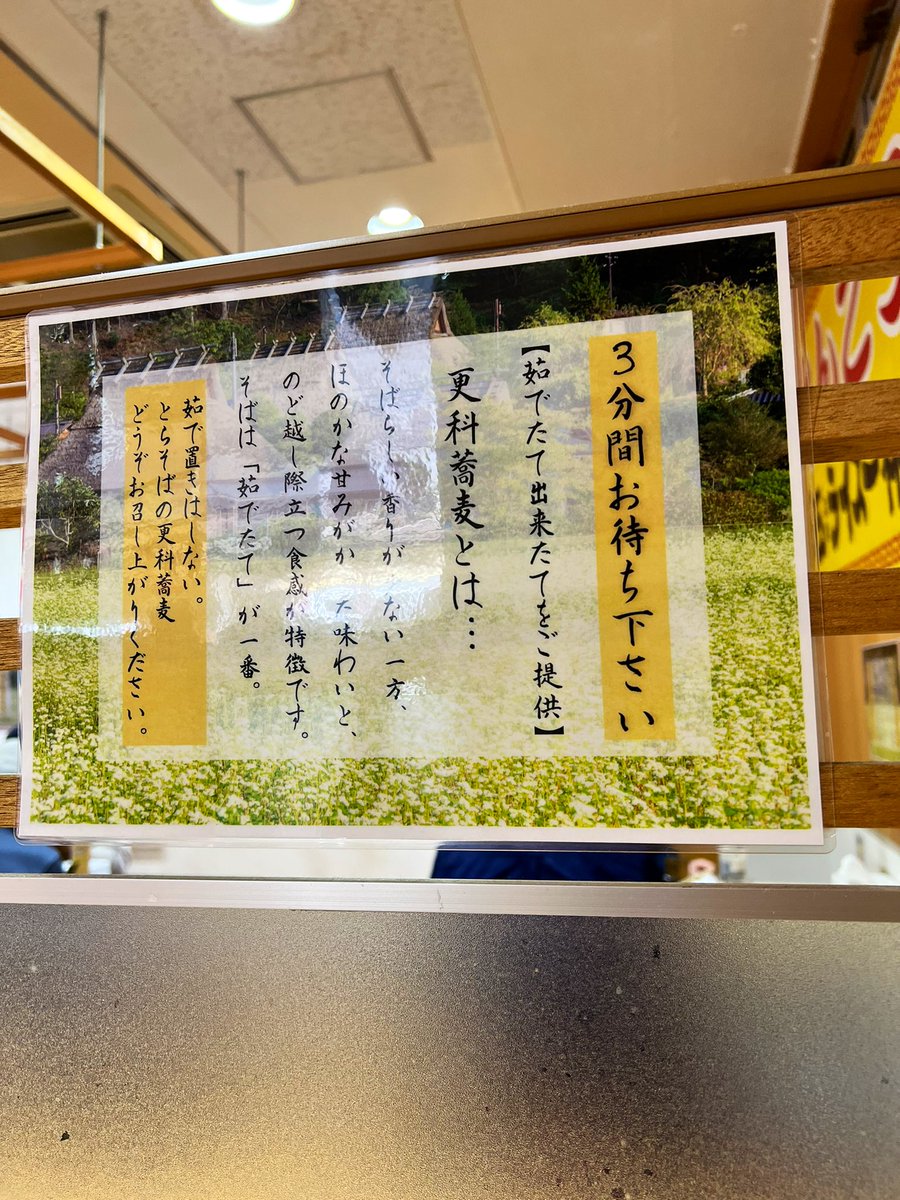 3分間お待ち下さい
【茹でたて出来たてをご提供】
更科蕎麦とは…
そばらしい香りが ない一方、
ほのかな甘みがか た味わいと、
のど越し際立つ食感が特徴です。
そばは「茹でたて」が一番。
茹で置きはしない。
とらそばの更科蕎麦
どうぞお召し上がりください。